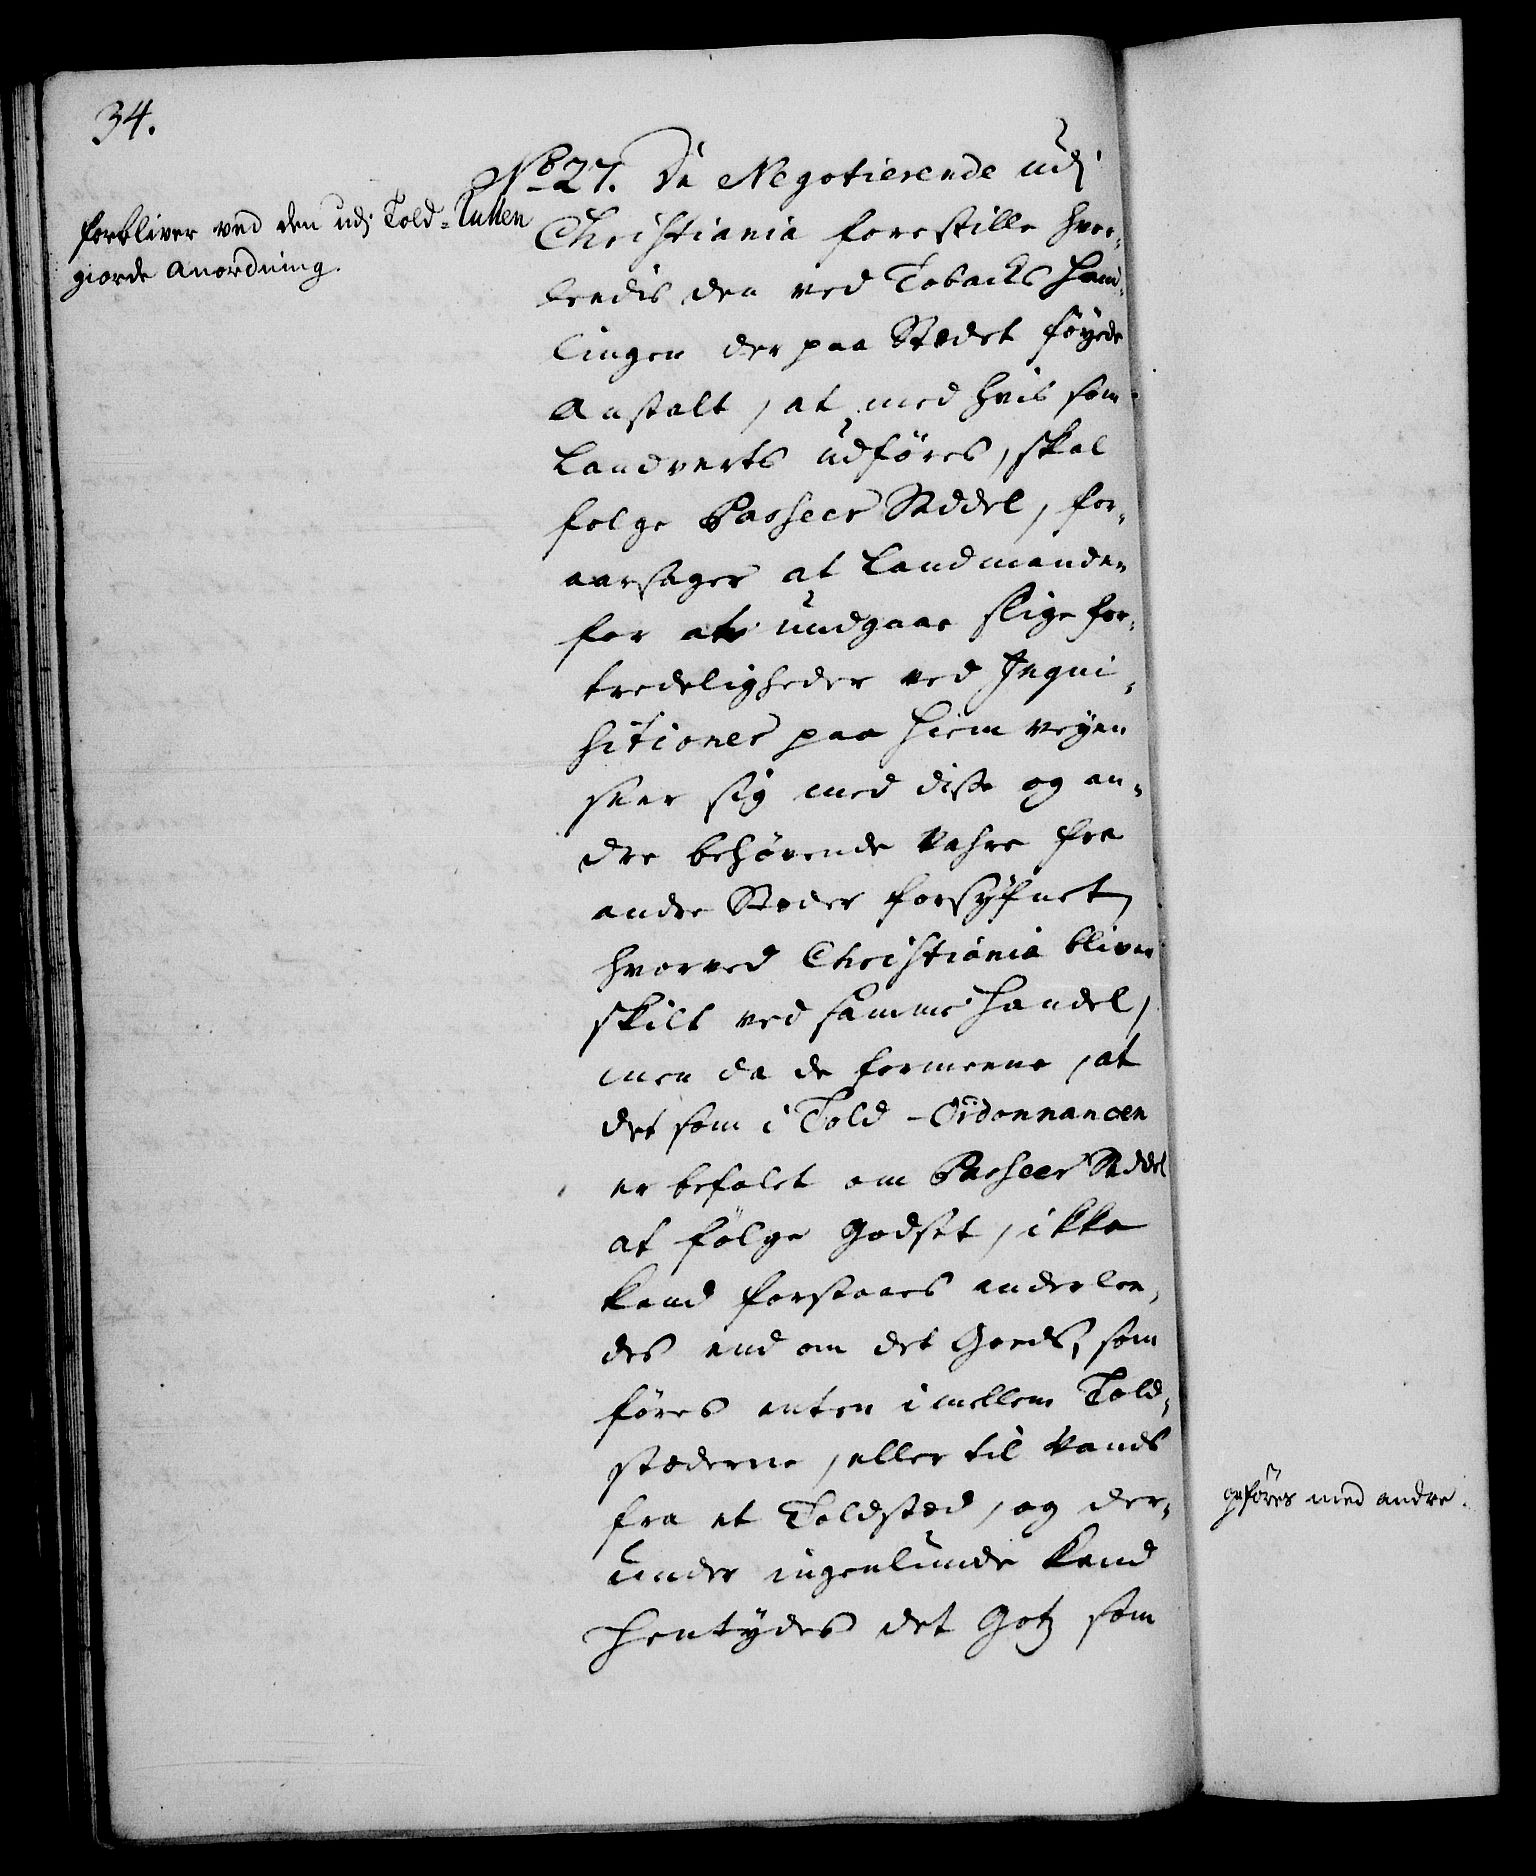 34.
forbliver ved den udj Told-Rullen
giorde Anordning.
No 27. De Negotierende udj
Christiania forestille hvor-
ledis den ved Tobacks Hand-
lingen der paa Stædet føyede
Anstalt, at med hvis som
Landverts udføres, skal
følge Passeer Seddel, for-
aarsager at Landmanden
for at undgaae slige for-
tredeligheder ved Inqui-
sitioner paa Hiem veyen
seer sig med disse og an-
dre behøvende Vahre fra
andre Stæder forsÿfnet,
hvorved Christiania bliver
skilt ved samme Handel,
men da de formeene, at
det som i Told-Ordonnancen
er befalet om Passeer Seddel
at følge Godset, ikke
kand forstaaes anderlee-
des end om det Goeds, som
føres enten imellem Told-
stæderne, eller til Vands
fra et Toldsted, og der-
under ingenlunde kand
hentydes det Gotz som
opføres med andre.